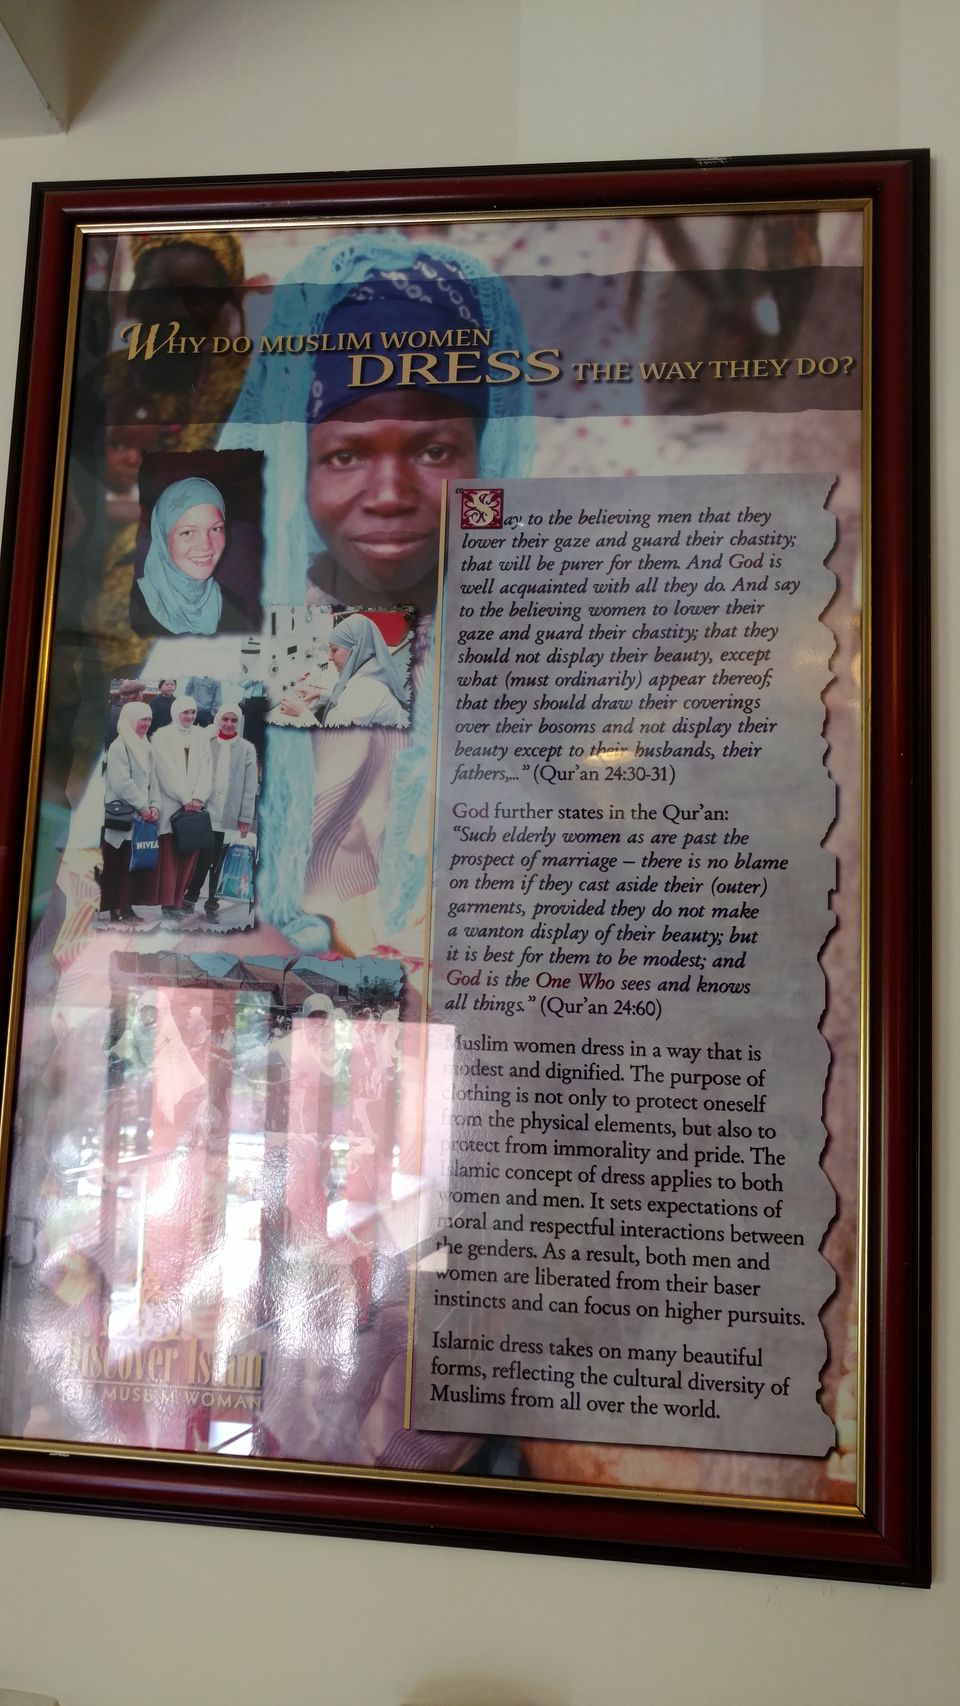 WHY DO MUSLIM WOMEN
DRESS THE WAY THEY DO?
"Say to the believing men that they
lower their gaze and guard their chastity;
that will be purer for them. And God is
well acquainted with all they do. And say
to the believing women to lower their
gaze and guard their chastity; that they
should not display their beauty, except
what (must ordinarily) appear thereof;
that they should draw their coverings
over their bosoms and not display their
beauty except to their husbands, their
fathers,..." (Qur'an 24:30-31)
God further states in the Qur'an:
"Such elderly women as are past the
prospect of marriage – there is no blame
on them if they cast aside their (outer)
garments, provided they do not make
a wanton display of their beauty; but
it is best for them to be modest; and
God is the One Who sees and knows
all things." (Qur'an 24:60)
Muslim women dress in a way that is
modest and dignified. The purpose of
clothing is not only to protect oneself
from the physical elements, but also to
protect from immorality and pride. The
Islamic concept of dress applies to both
women and men. It sets expectations of
moral and respectful interactions between
the genders. As a result, both men and
women are liberated from their baser
instincts and can focus on higher pursuits.
Islamic dress takes on many beautiful
forms, reflecting the cultural diversity of
Muslims from all over the world.
NIVEA
Discover Islam
MUSLIM WOMAN